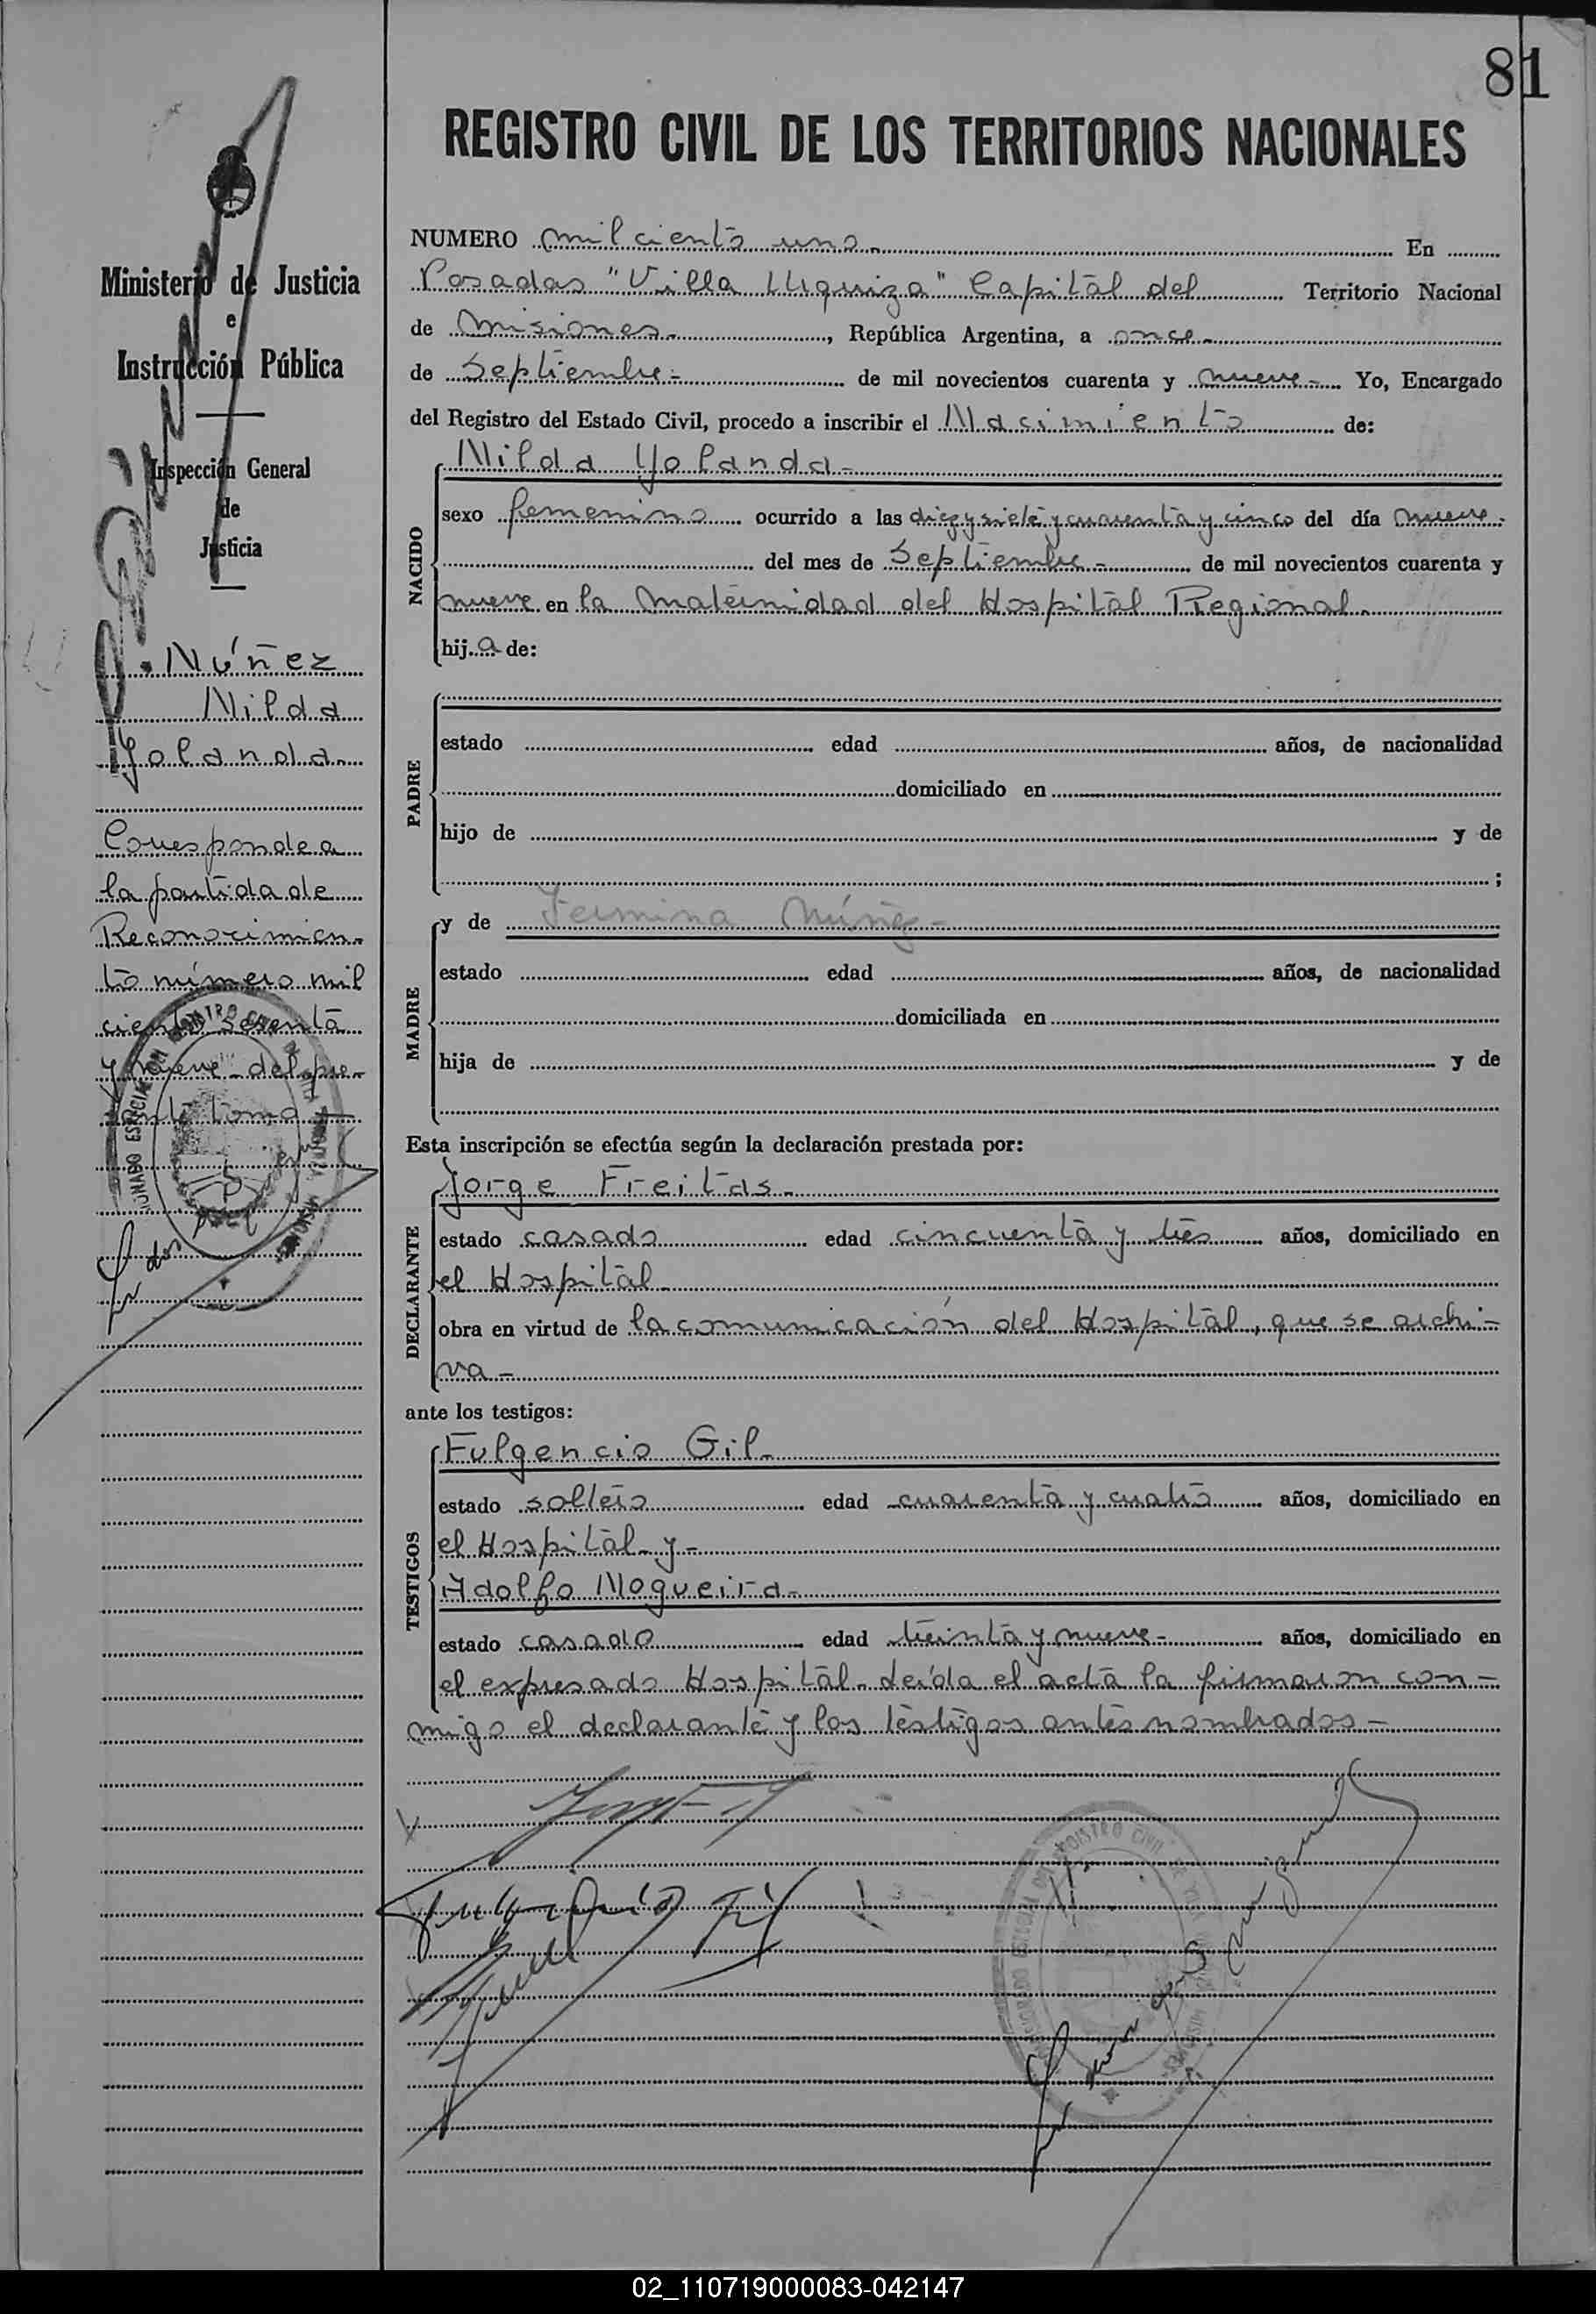 81
REGISTRO CIVIL DE LOS TERRITORIOS NACIONALES
Ministerio de Justicia
e
Instrucción Pública
Inspección General
de
Justicia
Núñez
Nilda
Yolanda.
Corresponde a
la partida de
Reconocimien-
to número mil
ciento sesenta
y nueve - del pre-
sente tomo
NUMERO mil ciento uno. En
Posadas "Villa Urquiza" Capital del Territorio Nacional
de Misiones-, República Argentina, a once-
de Septiembre- de mil novecientos cuarenta y nueve- Yo, Encargado
del Registro del Estado Civil, procedo a inscribir el Nacimiento de:
NACIDO
Nilda Yolanda-
sexo femenino ocurrido a las diez y siete y cuarenta y cinco del día nueve-
del mes de Septiembre- de mil novecientos cuarenta y
nueve en la Maternidad del Hospital Regional.
hija de:
PADRE
estado edad años, de nacionalidad
domiciliado en
hijo de y de
;
MADRE
y de Fermina Núñez-
estado edad años, de nacionalidad
domiciliada en
hija de y de
Esta inscripción se efectúa según la declaración prestada por:
DECLARANTE
Jorge Freitas-
estado casado edad cincuenta y tres años, domiciliado en
el Hospital
obra en virtud de la comunicación del Hospital, que se archi-
va-
ante los testigos:
TESTIGOS
Fulgencio Gil-
estado soltero edad cuarenta y cuatro años, domiciliado en
el Hospital- y-
Adolfo Nogueira-
estado casado edad treinta y nueve- años, domiciliado en
el expresado Hospital- Leída el acta la firmaron con-
migo el declarante y los testigos antes nombrados-
02_110719000083-042147